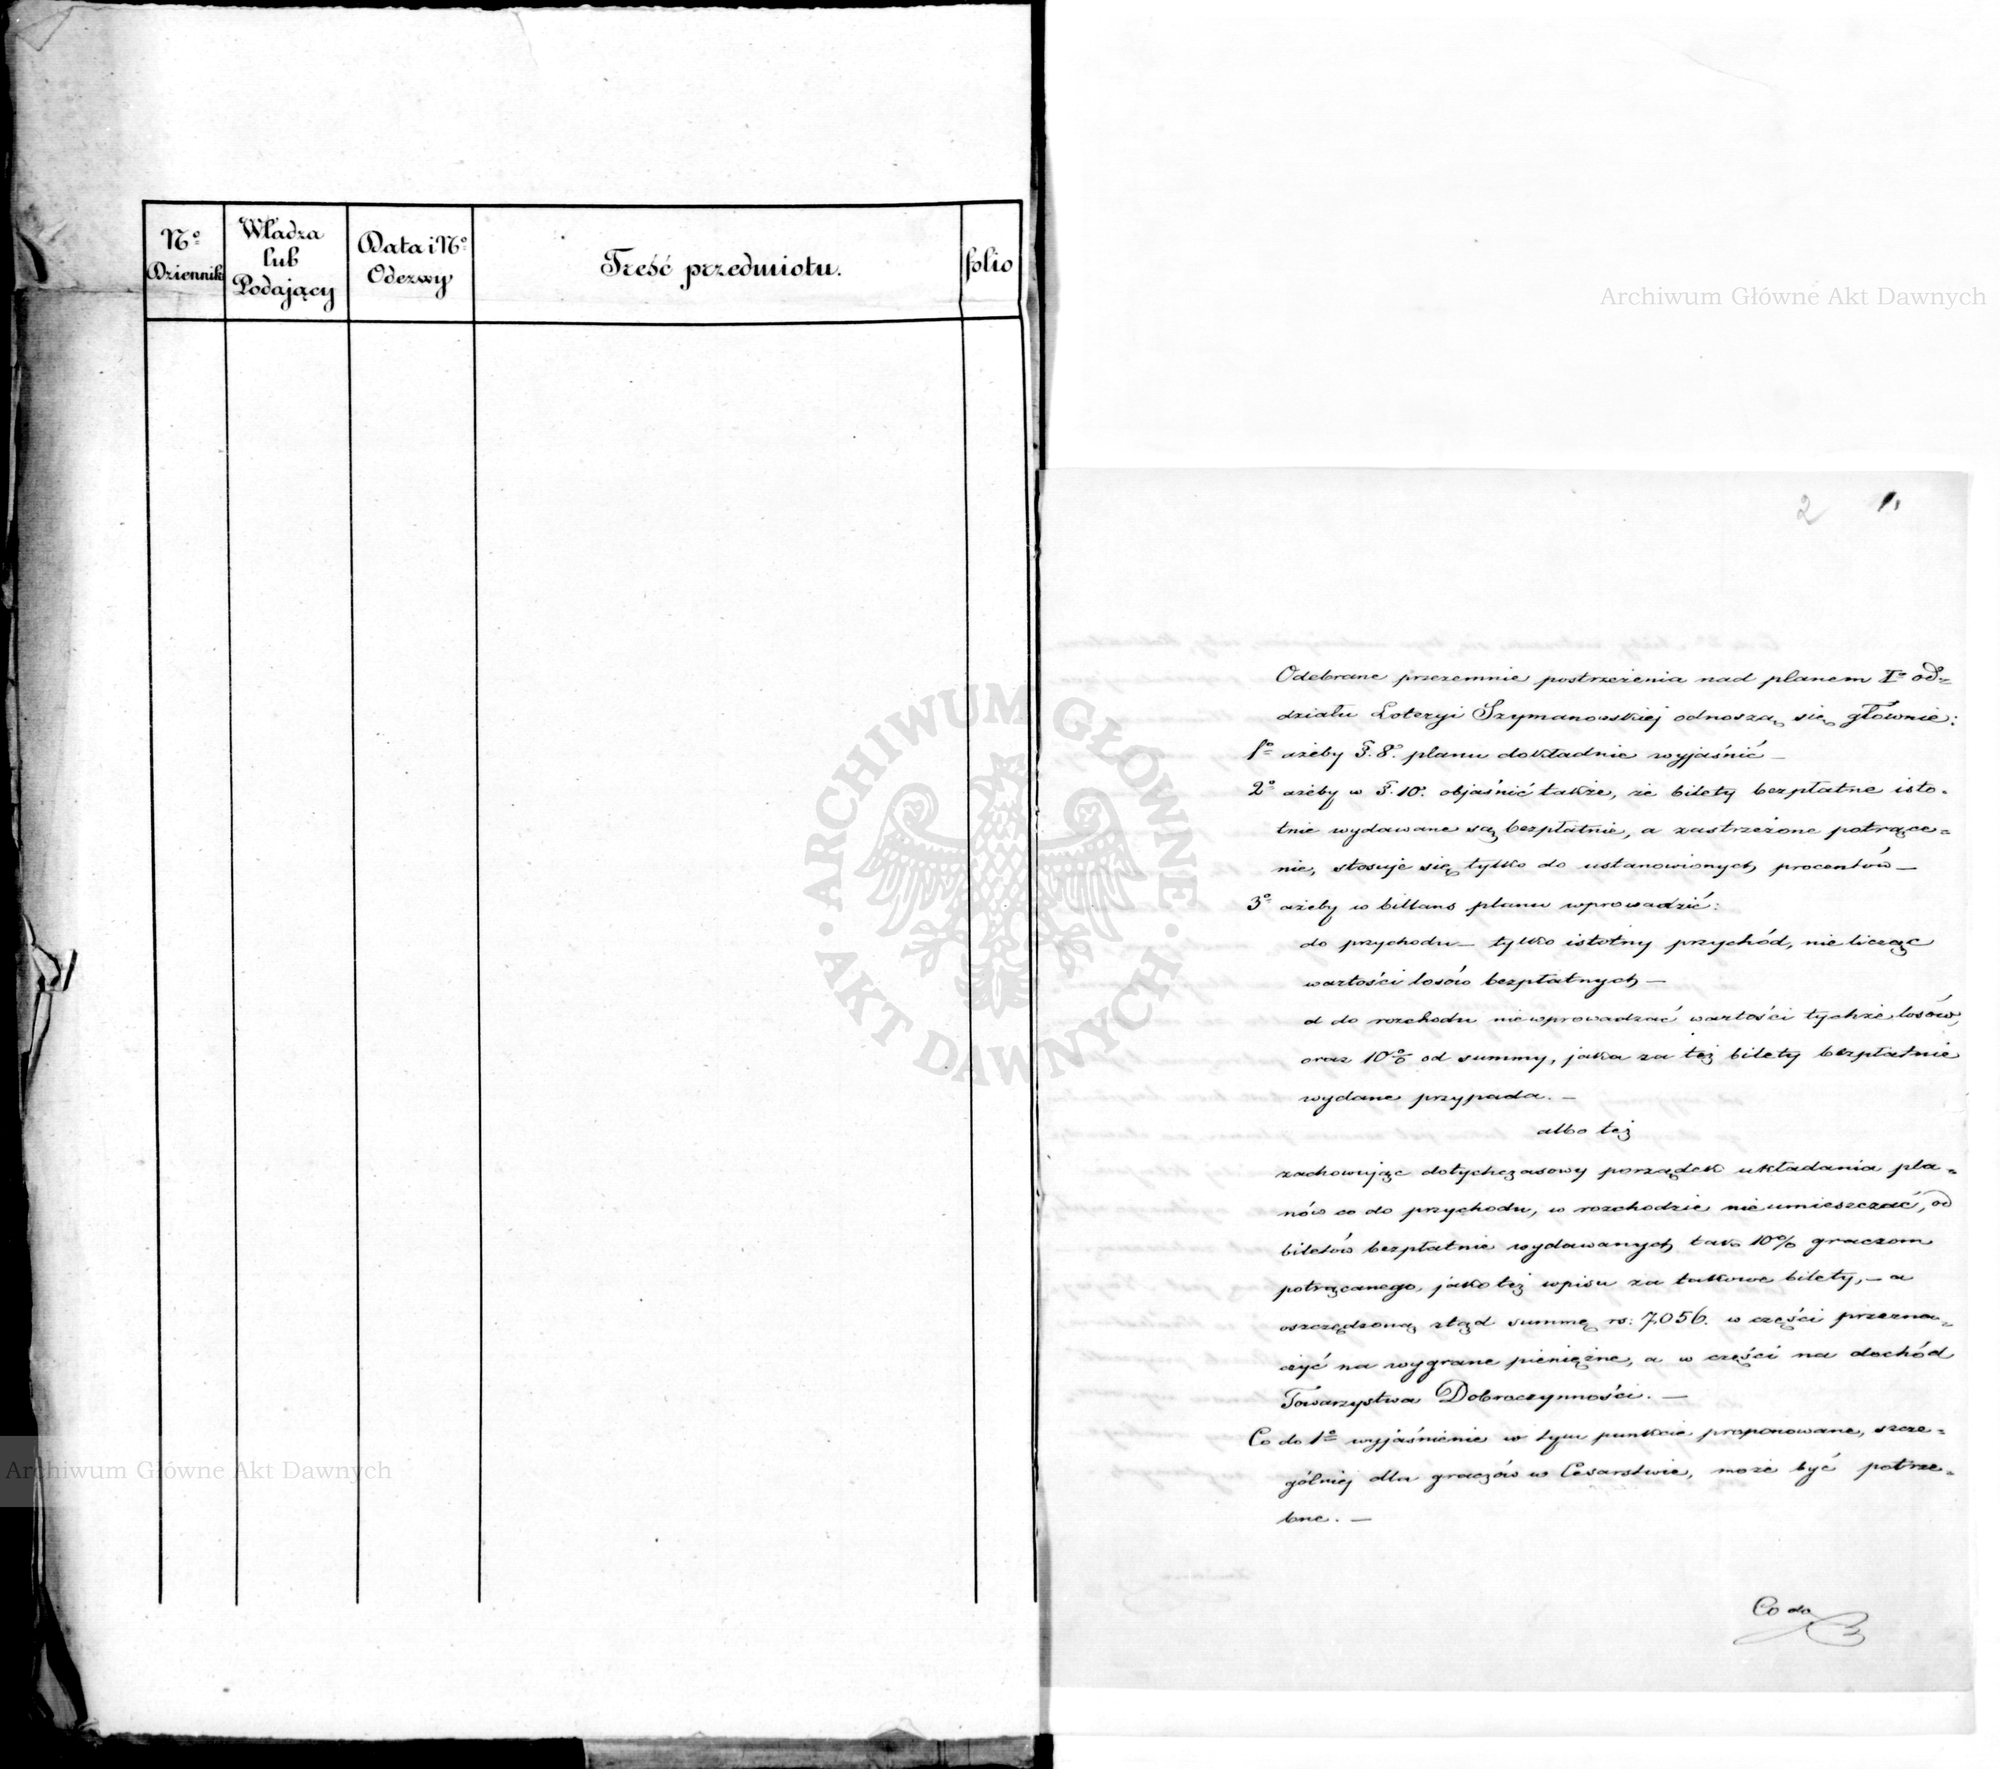 Nº Dziennik
Władza lub Podający
Data i Nº Odezwy
Treść przedmiotu.
folio
Archiwum Główne Akt Dawnych
2 1,
Odebrane przezemnie postrzeżenia nad planem Iº od=
działu Loteryi Szymanowskiej odnoszą się głównie:
1º ażeby §. 8º planu dokładnie wyjaśnić —
2º ażeby w §. 10º objaśnić także, że bilety bezpłatne isto-
tnie wydawane są bezpłatnie, a zastrzeżone potrące=
nie, stosuje się tylko do ustanowionych procentów —
3º ażeby w billans planu wprowadzić:
do przychodu — tylko istotny przychód, nie licząc
wartości losów bezpłatnych —
a do rozchodu niewprowadzać wartości tychże losów,
oraz 10% od summy, jaka za też bilety bezpłatnie
wydane przypada. —
albo też
zachowując dotychczasowy porządek układania pla=
nów co do przychodu, w rozchodzie nieumieszczać, od
biletów bezpłatnie wydawanych tak 10% graczom
potrącanego, jako też wpisu za takowe bilety, — a
oszczędzoną ztąd summę rs: 7,056. w części przezna=
czyć na wygrane pieniężne, a w części na dochód
Towarzystwa Dobroczynności. —
Co do 1º wyjaśnienie w tym punkcie proponowane, szcze=
gólniej dla graczów w Cesarstwie, może być potrze=
bne. —
Co do
ARCHIWUM GŁÓWNE AKT DAWNYCH
Archiwum Główne Akt Dawnych